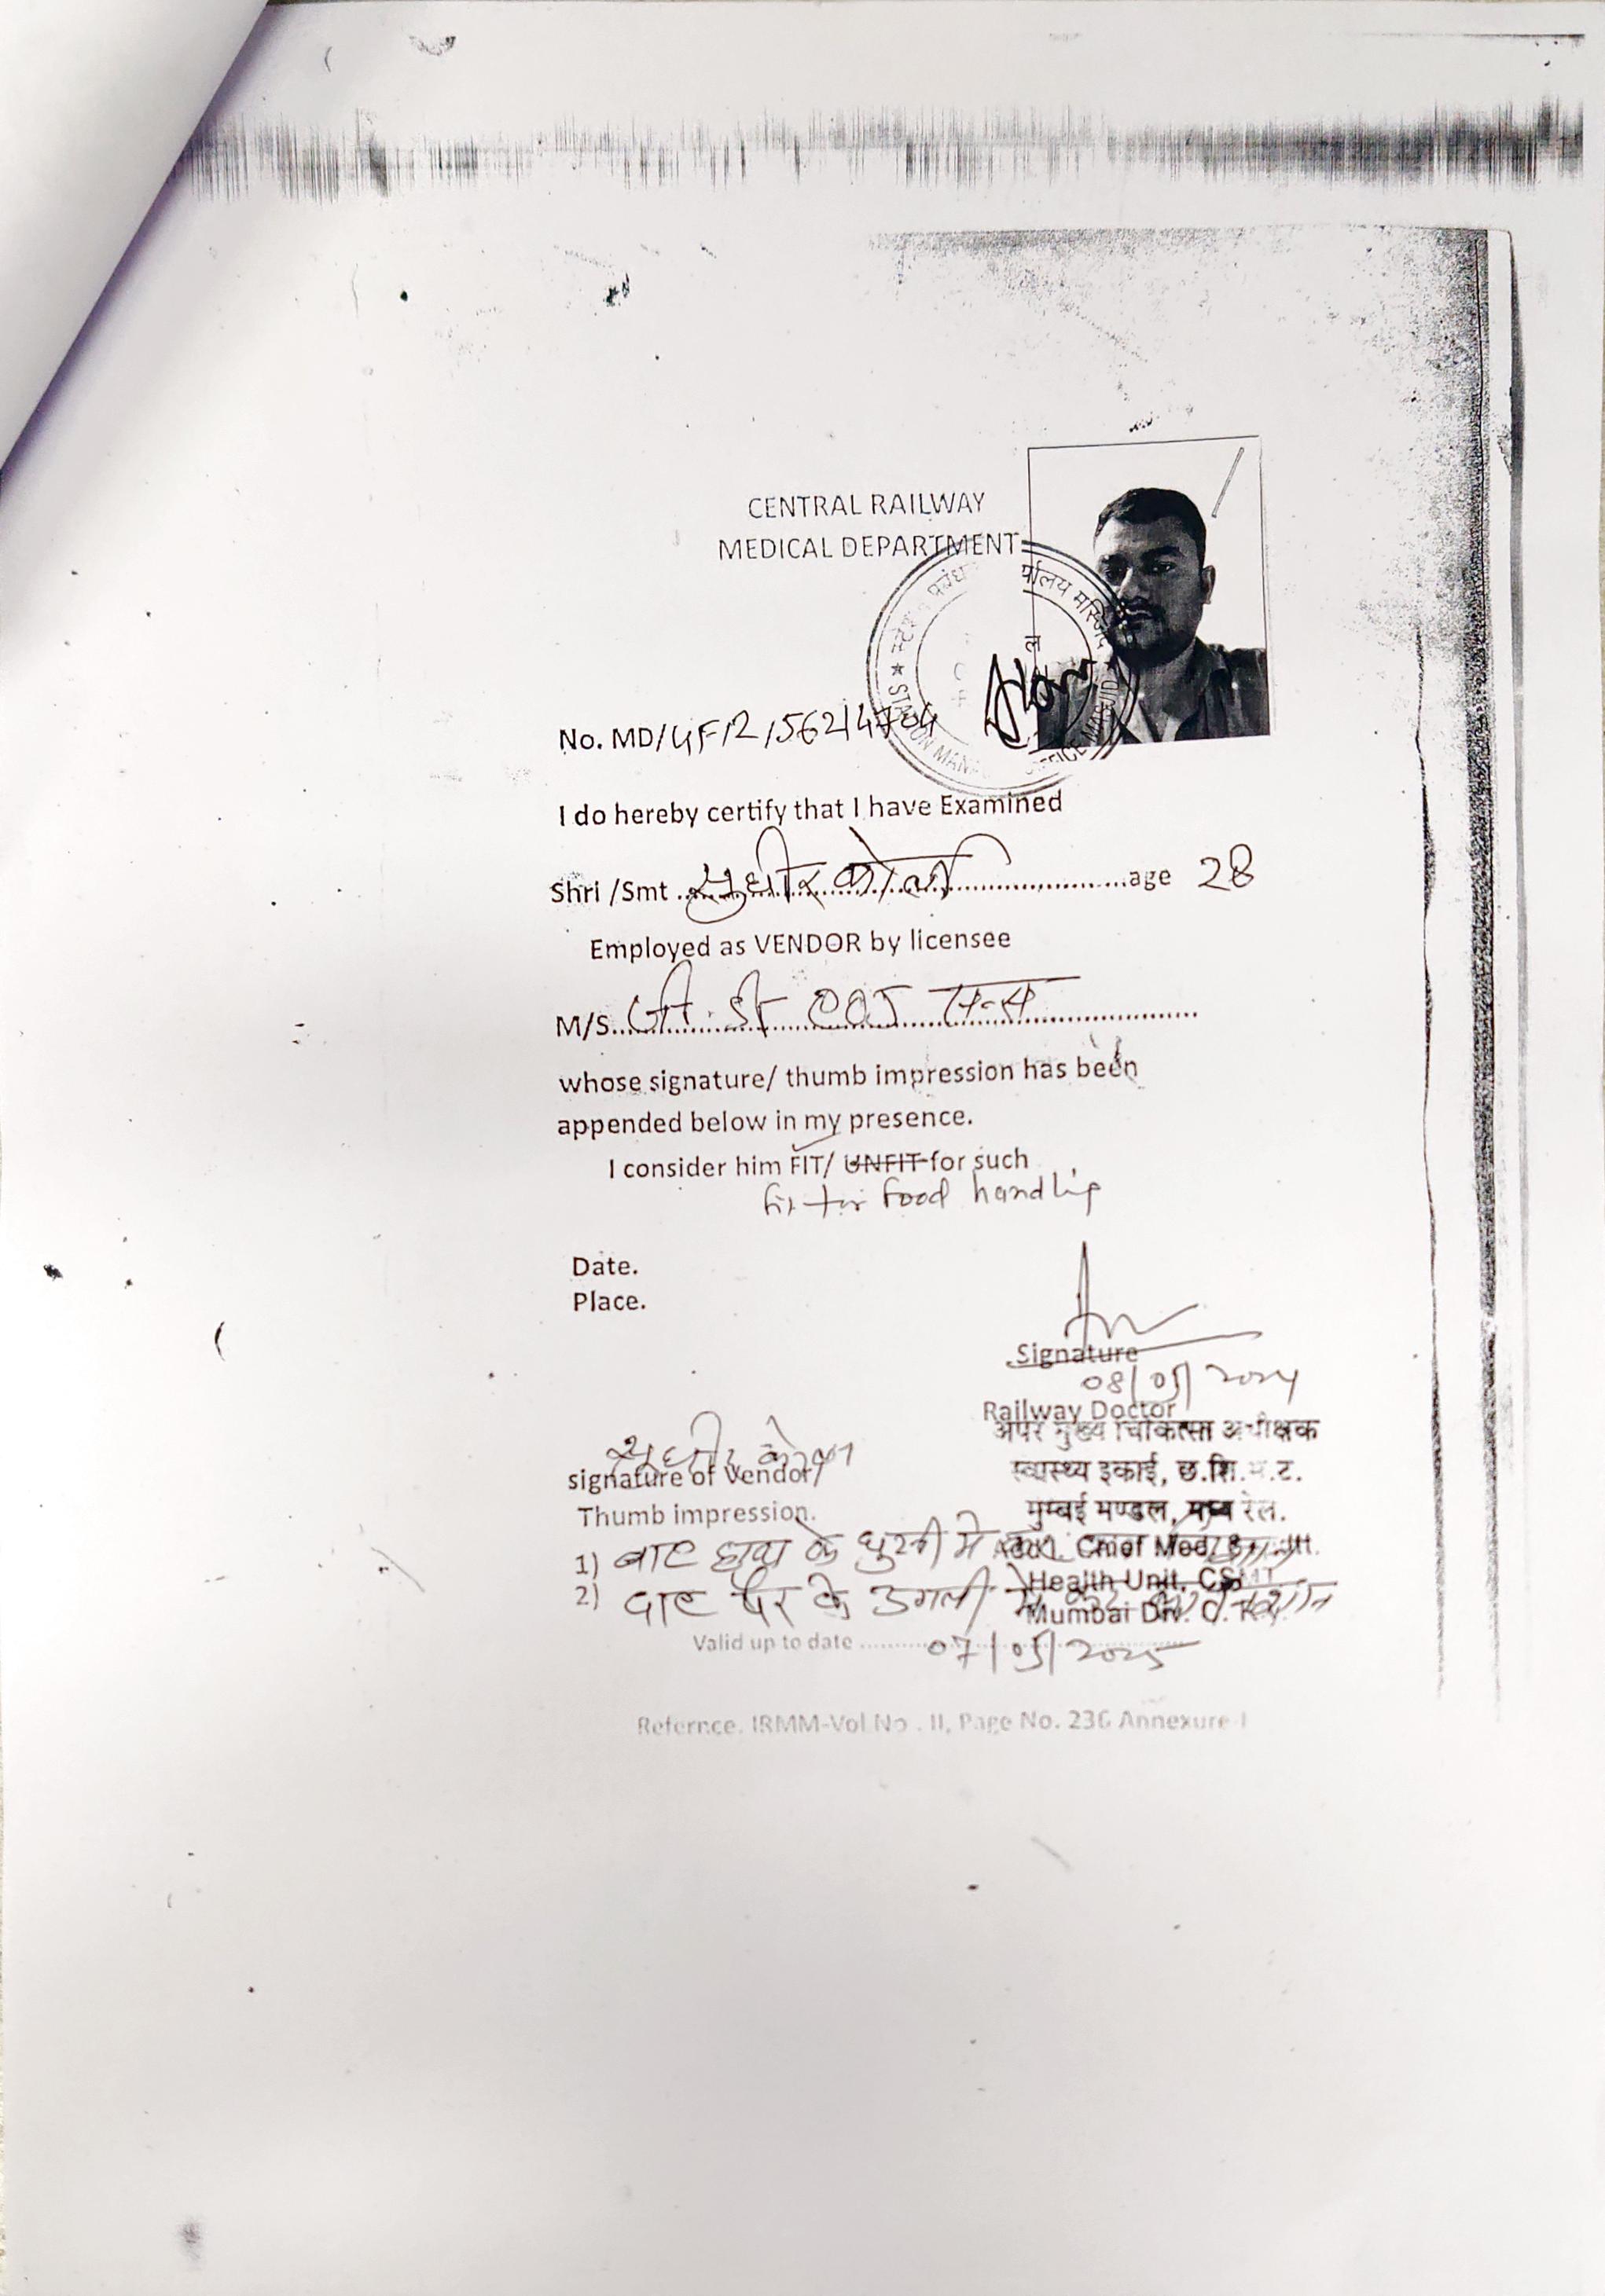 CENTRAL RAILWAY
MEDICAL DEPARTMENT
No. MD/UF/2/562/4704
I do hereby certify that I have Examined
Shri /Smt सुधीर कोल age 28
Employed as VENDOR by licensee
M/S.
whose signature/ thumb impression has been
appended below in my presence.
I consider him FIT/ UNFIT for such
fit for food handling
Date.
Place.
Signature
08/05/2024
Railway Doctor
अपर मुख्य चिकित्सा अधीक्षक
स्वास्थ्य इकाई, छ.शि.म.ट.
मुम्बई मण्डल, मध्य रेल.
Addl. Chief Med. Supdtt.
Health Unit, CSMT
Mumbai Div. C. Rly.
सुधीर कोल
signature of Vendor/
Thumb impression.
1) के में
2) पैर के उगली में
Valid up to date 07/05/2025
Refernce. IRMM-Vol No . II, Page No. 236 Annexure-I